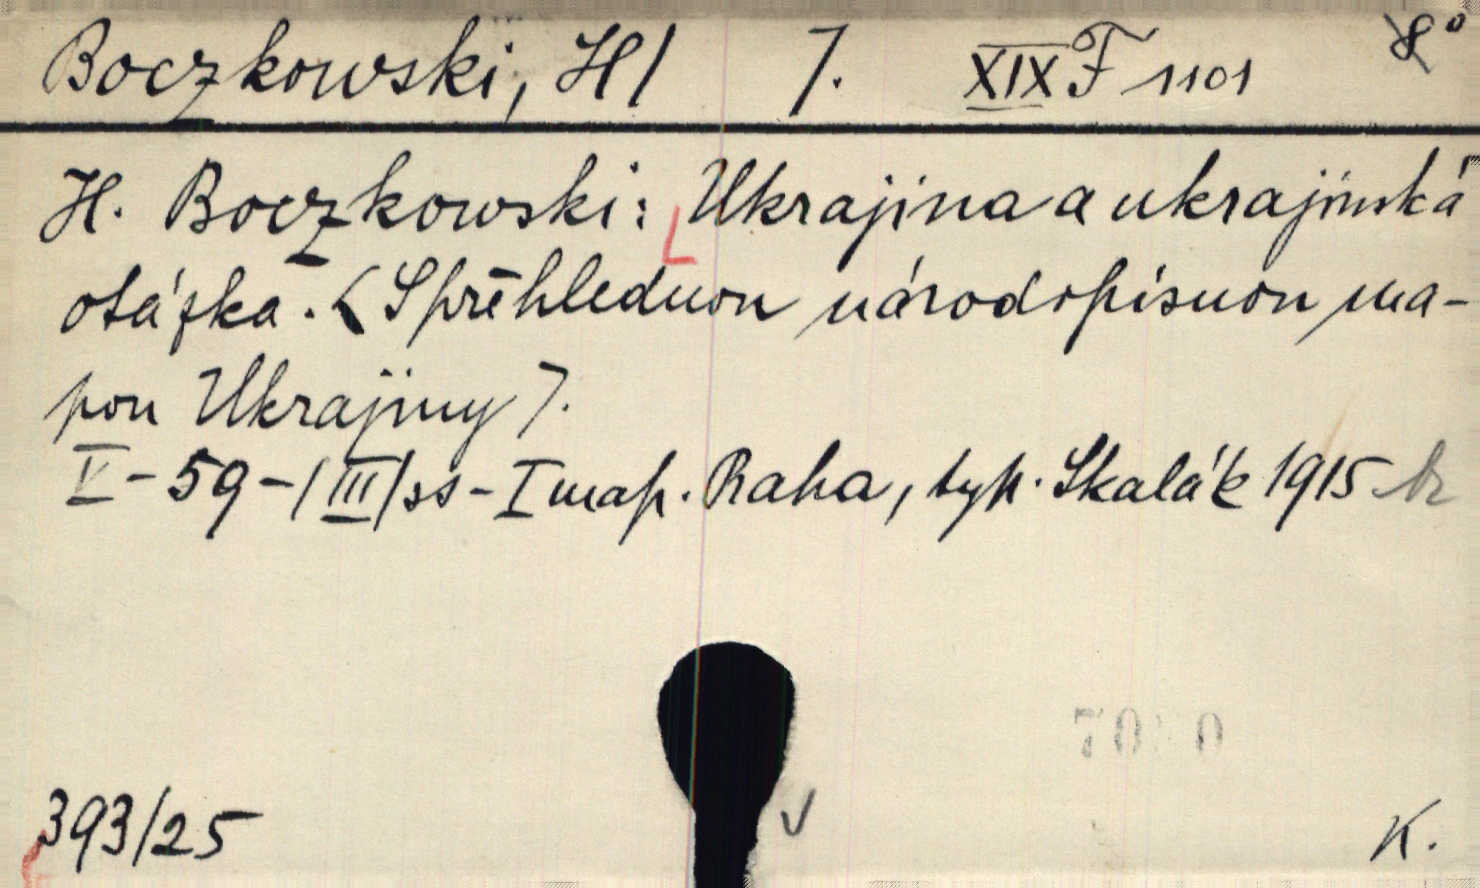 Boczkowski, H/ 7. XIX F 1101 8°
H. Boczkowski: Ukrajina a ukrajinská
otázka. (S přehlednou národopisnou ma-
pou Ukrajiny).
V-59-/III/ss-I map. Praha, typ. Skalák 1915 br
393/25
K.